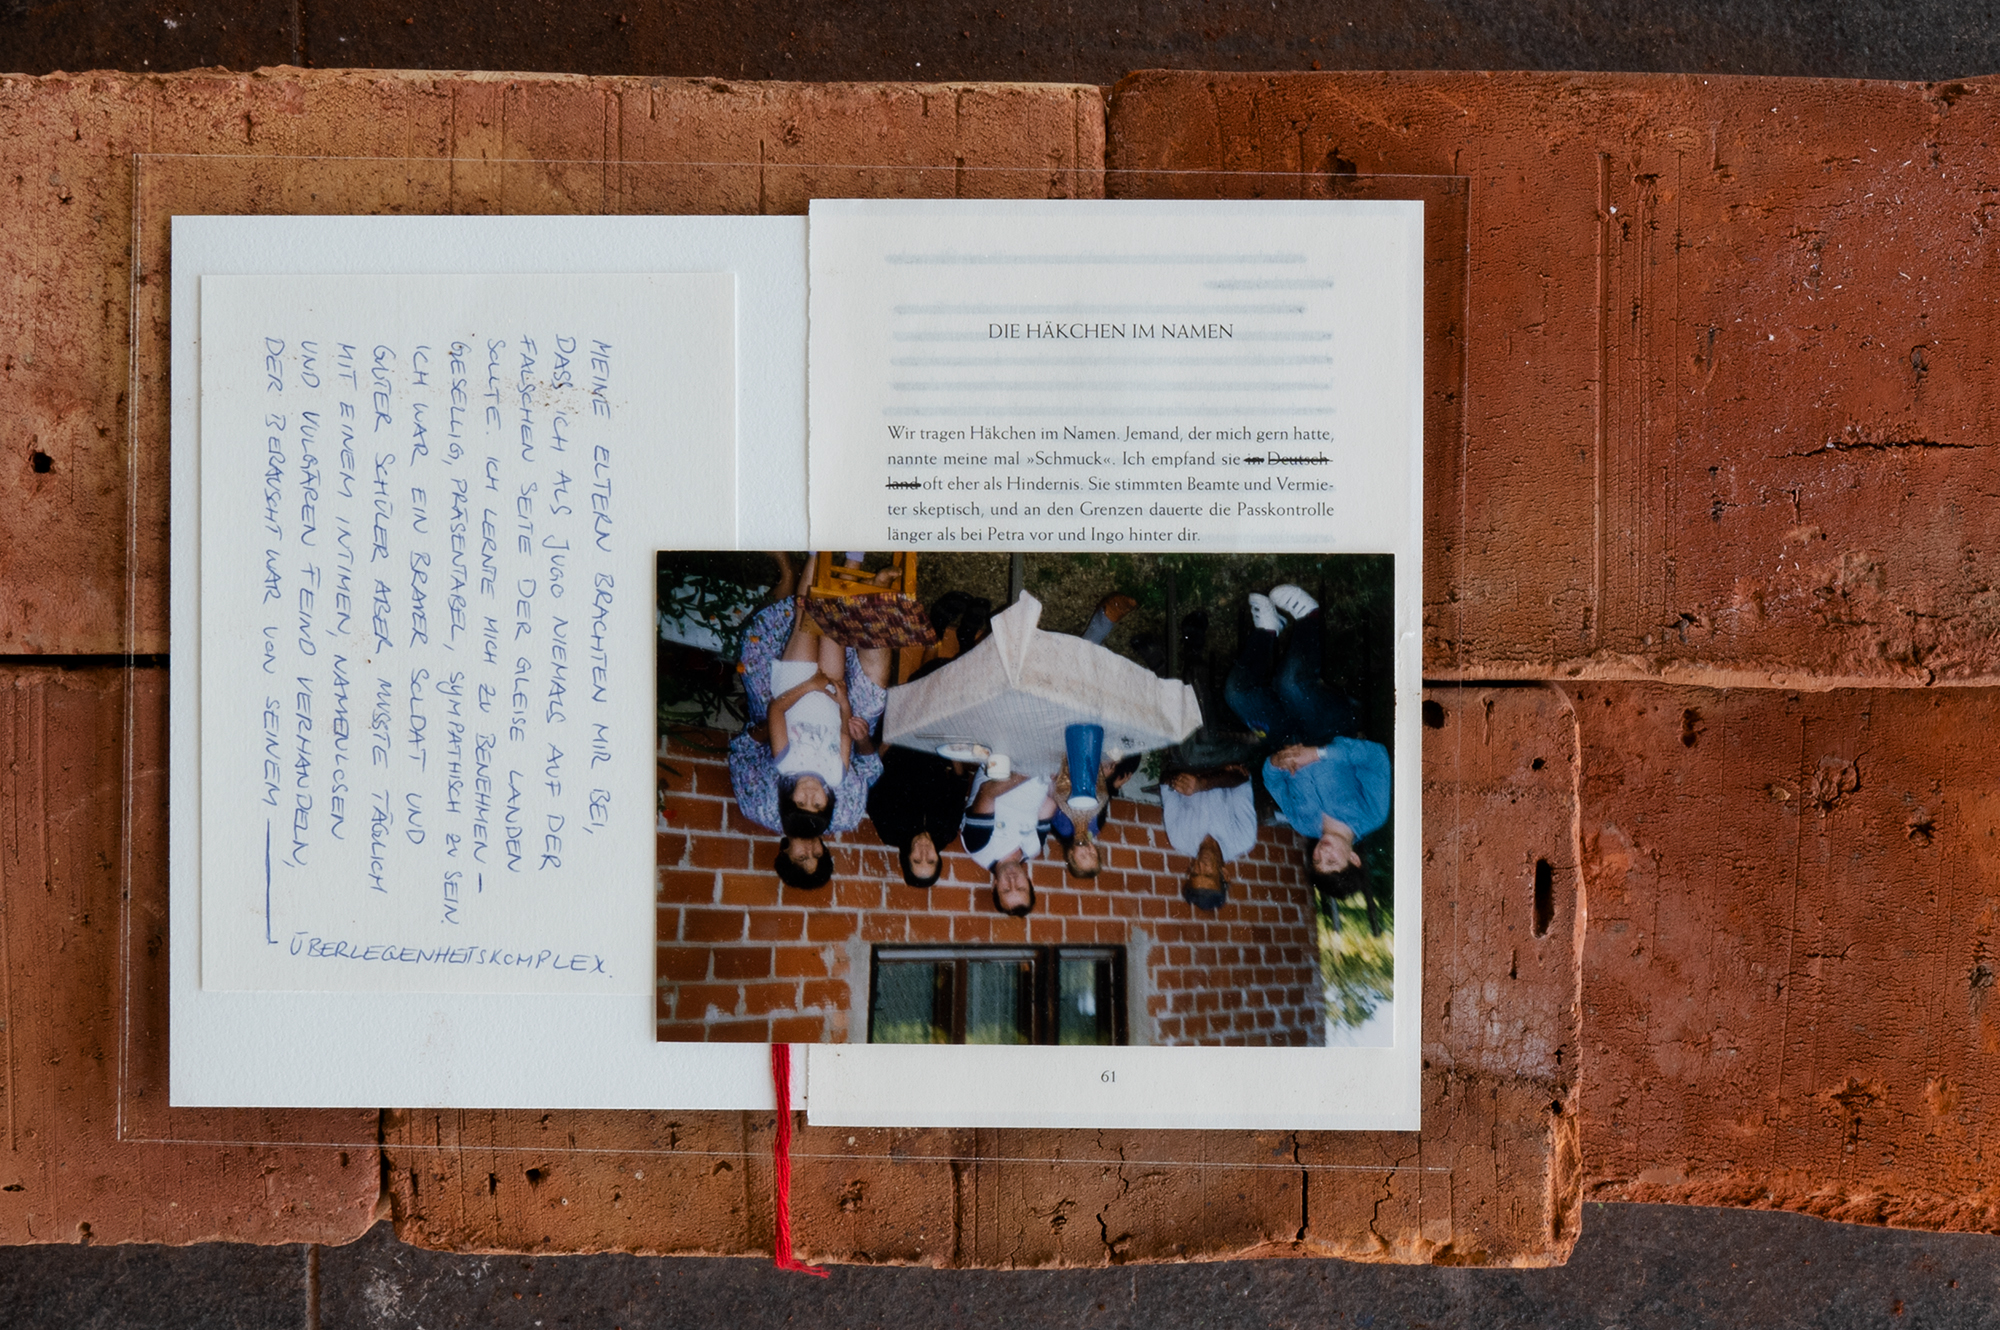 MEINE ELTERN BRACHTEN MIR BEI,
DASS ICH ALS JUGO NIEMALS AUF DER
FALSCHEN SEITE DER GLEISE LANDEN
SOLLTE. ICH LERNTE MICH ZU BENEHMEN –
GESELLIG, PRÄSENTABEL, SYMPATHISCH ZU SEIN.
ICH WAR EIN BRAVER SOLDAT UND
GUTER SCHÜLER ABER MUSSTE TÄGLICH
MIT EINEM INTIMEN, NAMENLOSEN
UND VULGÄREN FEIND VERHANDELN,
DER BERAUSCHT WAR VON SEINEM
ÜBERLEGENHEITSKOMPLEX.
DIE HÄKCHEN IM NAMEN
Wir tragen Häkchen im Namen. Jemand, der mich gern hatte,
nannte meine mal »Schmuck«. Ich empfand sie in Deutsch
land oft eher als Hindernis. Sie stimmten Beamte und Vermie-
ter skeptisch, und an den Grenzen dauerte die Passkontrolle
länger als bei Petra vor und Ingo hinter dir.
61